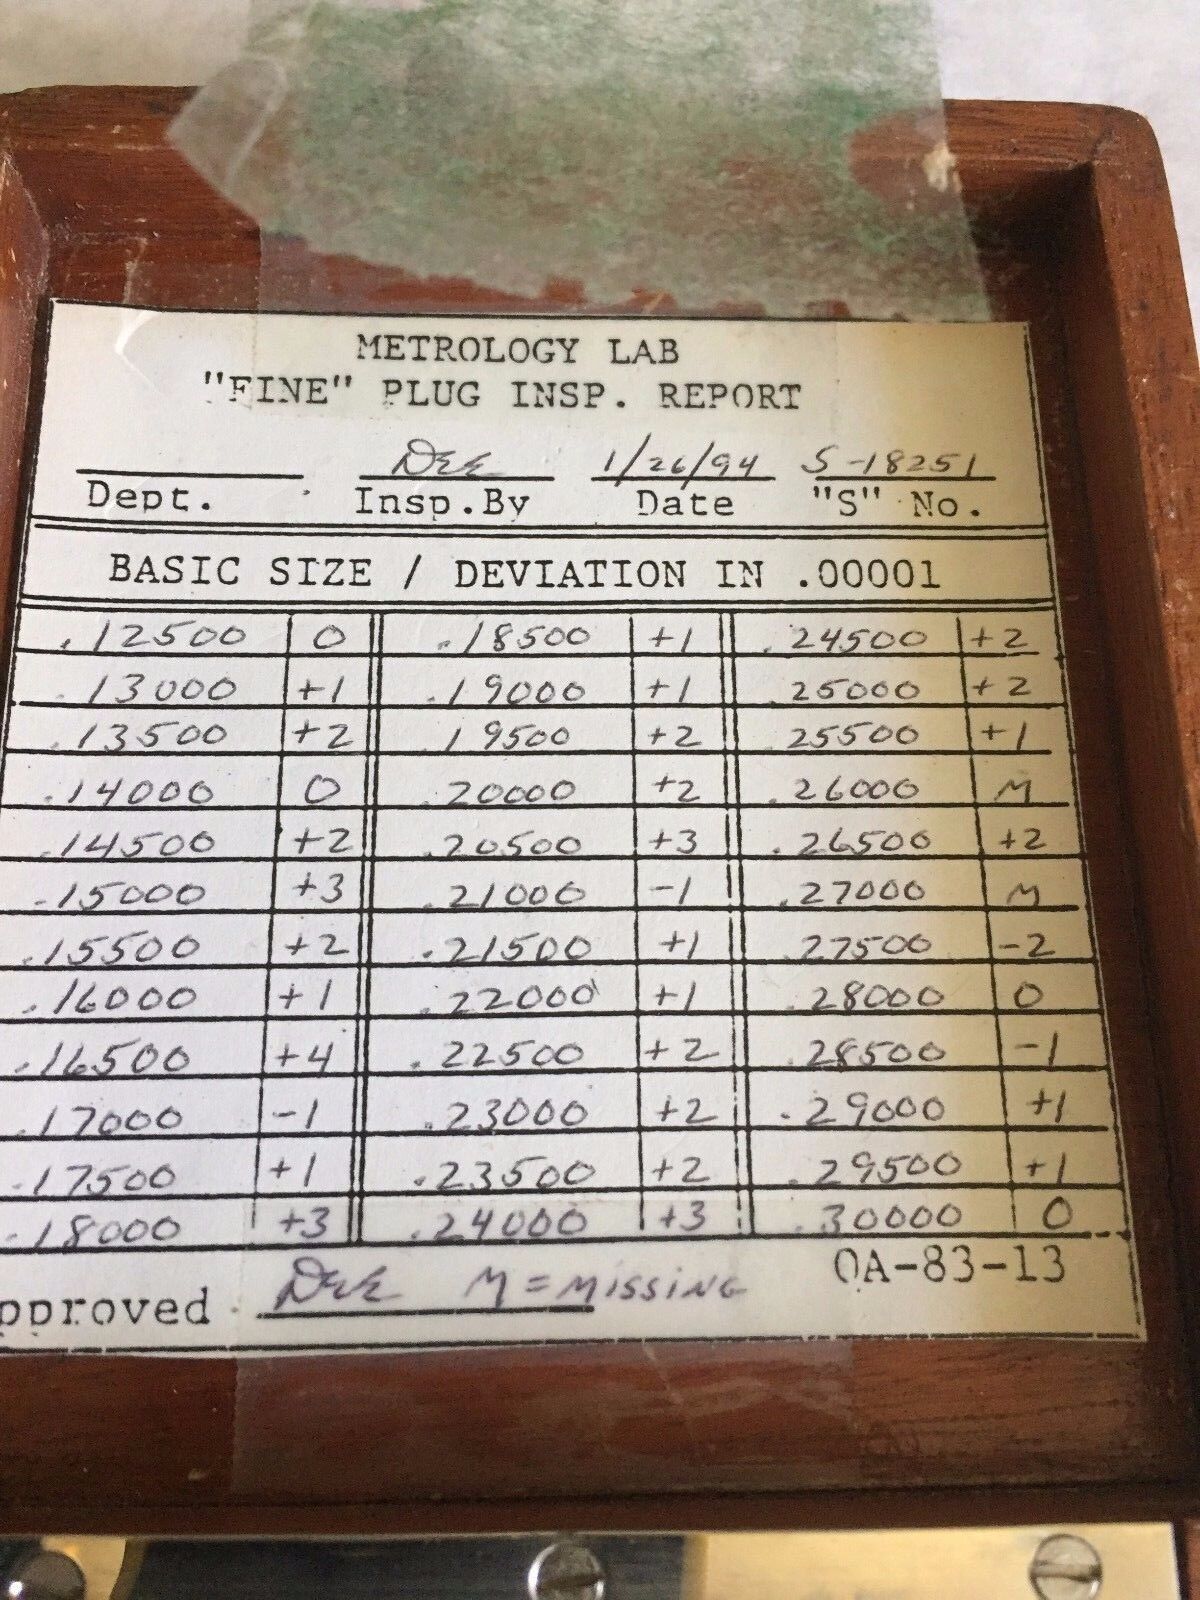 METROLOGY LAB
"FINE" PLUG INSP. REPORT
DEE 1/26/94 S-18251
Dept. Insp.By Date "S" No.
BASIC SIZE / DEVIATION IN .00001
.12500 0 .18500 +1 .24500 +2
.13000 +1 .19000 +1 25000 +2
.13500 +2 19500 +2 25500 +1
.14000 0 .20000 +2 .26000 M
.14500 +2 .20500 +3 .26500 +2
.15000 +3 .21000 -1 .27000 M
.15500 +2 .21500 +1 .27500 -2
.16000 +1 .22000 +1 .28000 0
.16500 +4 .22500 +2 .28500 -1
.17000 -1 .23000 +2 .29000 +1
.17500 +1 .23500 +2 .29500 +1
.18000 +3 .24000 +3 .30000 0
OA-83-13
pproved DEE M = MISSING